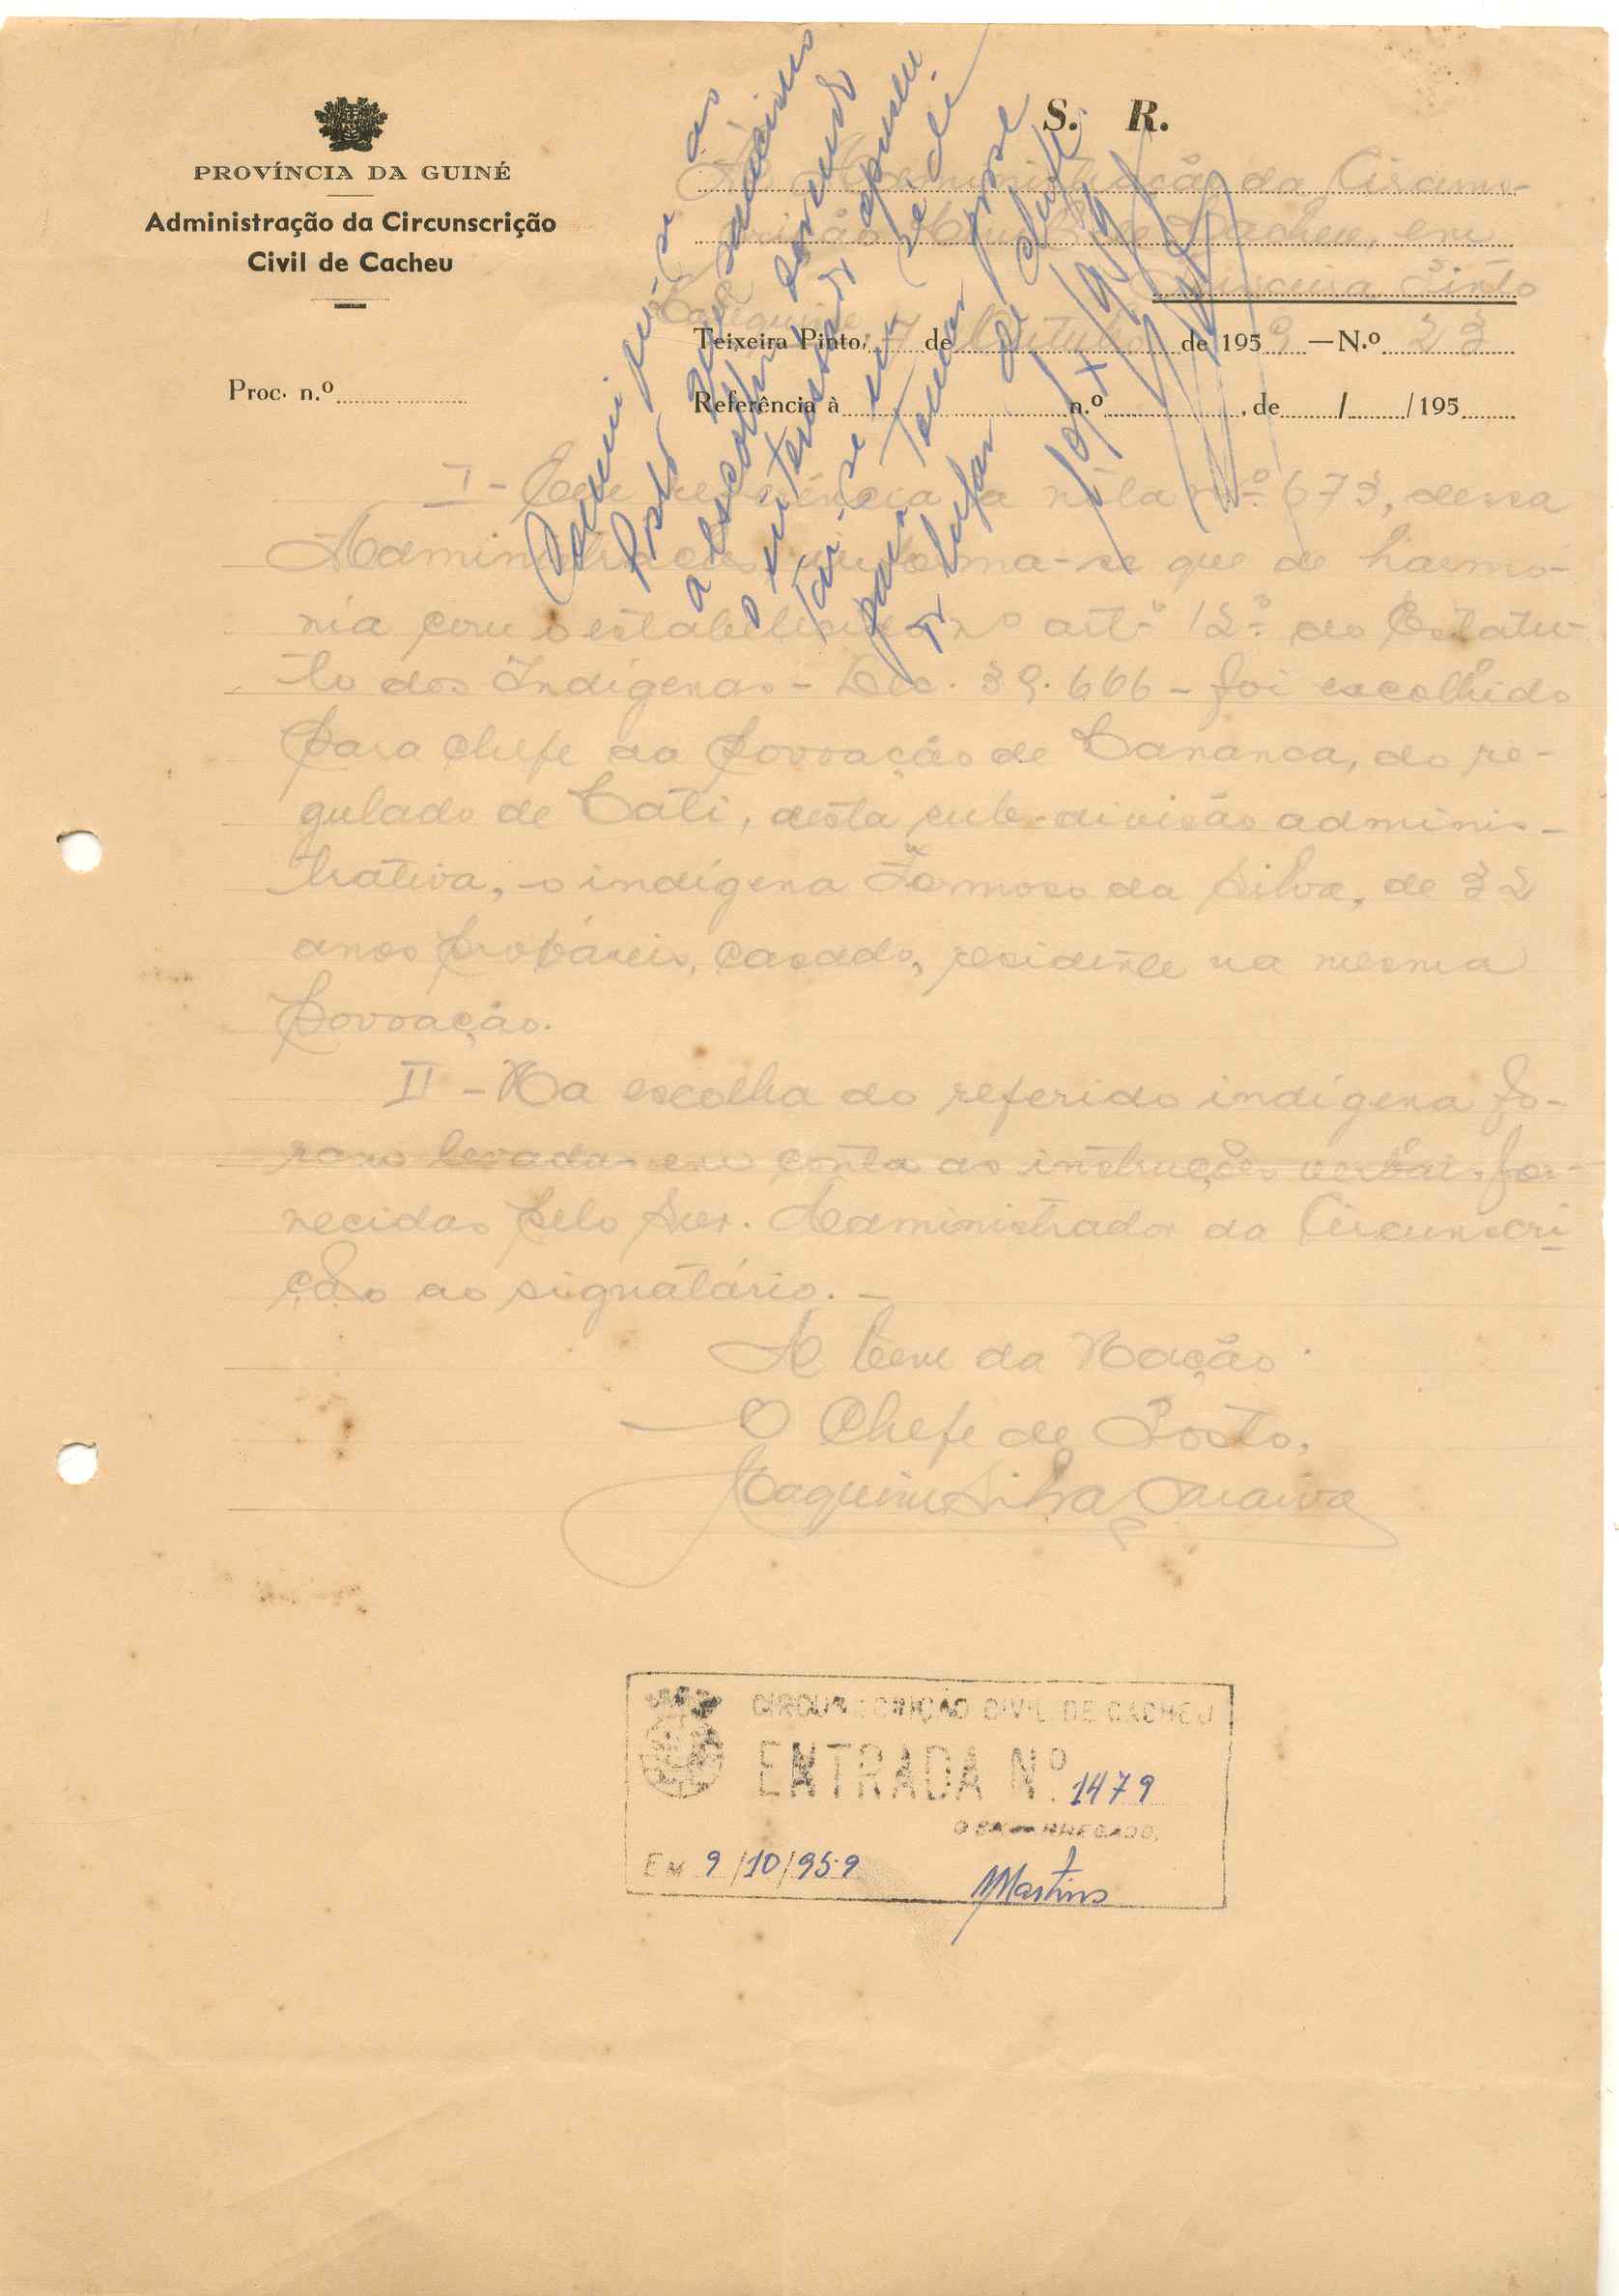 S. R.
PROVÍNCIA DA GUINÉ
Administração da Circunscrição
Civil de Cacheu
À Administração da Circuns-
crição Civil de Cacheu, em
Teixeira Pinto
Teixeira Pinto, 7 de Outubro de 1959 — N.º 23
Proc. n.º
Referência à n.º , de / /195
Comuni que-se ao
Posto que sancciono
a escolha devendo
o interessado apresen
tar-se na Sede
para tomar posse
do lugar de chefe.
10/X/959
I - Com referência a nota nº. 673, dessa
Administração, informa-se que de harmo-
nia com o estabelecido no artº 12º. do Estatu-
to dos Indígenas - Dec. 39.666 - foi escolhido
para chefe da povoação de Cananca, do re-
gulado de Cati, desta sub-divisão adminis-
trativa, o indígena Formoso da Silva, de 32
anos prováveis, casado, residente na mesma
povoação.
II - Na escolha do referido indígena fo-
ram levadas em conta as instruções verbais for-
necidas pelo Snr. Administrador da Circunscri-
ção ao signatário. -
A bem da Nação
O Chefe de Posto,
Joaquim Silva Saraiva
CIRCUNSCRIÇÃO CIVIL DE CACHEU
ENTRADA Nº. 1479
O ENCARREGADO,
EM 9/10/959
MMartins